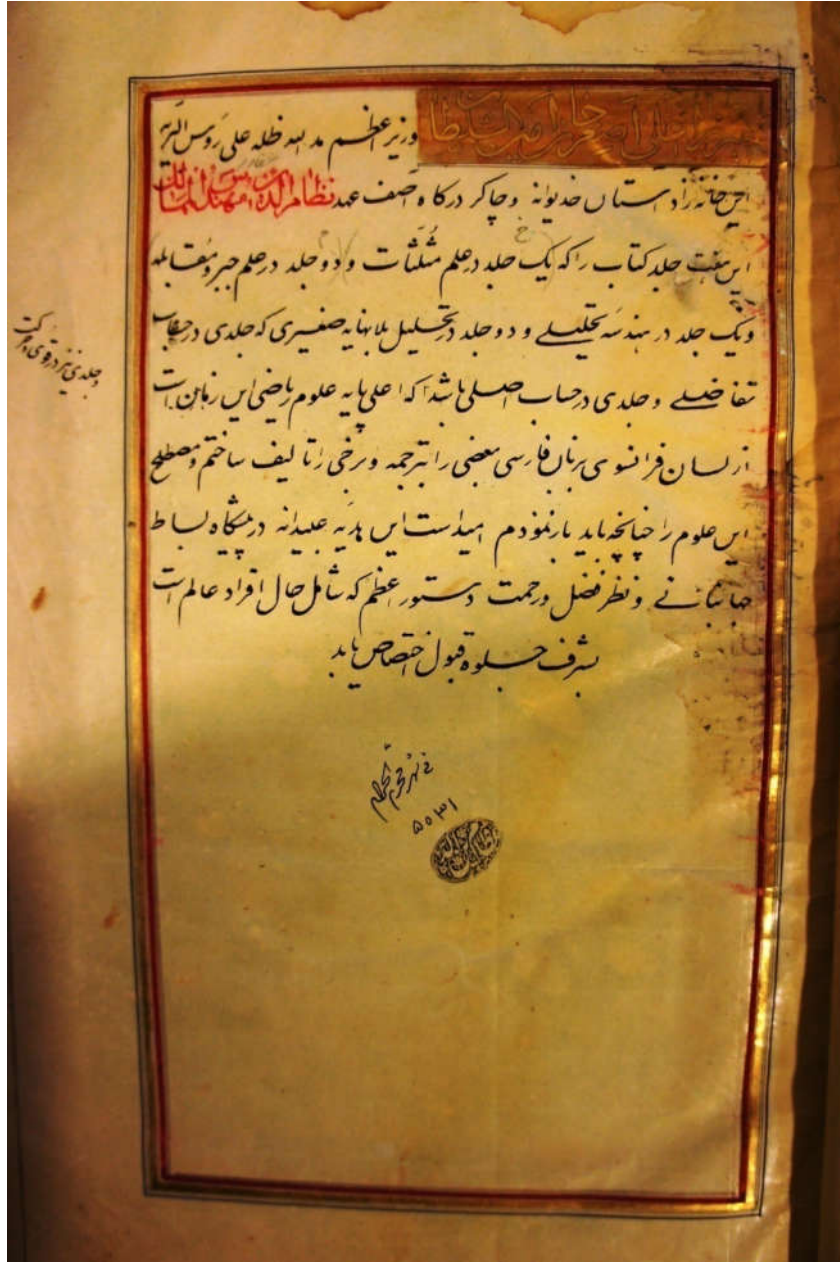 وزیر اعظم مد الله ظله علی رؤس البریه
این خانه زاد استان خدیوانه و چاکر درکاه آصف عهد نظام الدین مهندس الممالک
این هفت جلد کتاب را که یک جلد در علم مثلثات و دو جلد در علم جبر و مقابله
و یک جلد در هندسه تحلیلے و دو جلد در تحلیل بلانهایه صغیری که جلدی در حساب
تفاضلے و جلدی در حساب اصلی باشد که اعلی پایه علوم ریاضی این زمان است
از لسان فرانسوی بزبان فارسی بعضی را ترجمه و برخی را تالیف ساختم و مصطلح
این علوم را چنانچه باید باز نمودم امید است این هدیه عبیدانه در پیشکاه بساط
جهانبانے و نظر فضل و رحمت دستور اعظم که شامل حال افراد عالم است
بشرف جلوه قبول اختصاص یابد
و جلدی نیز در قوی و حرکت
فی شهر محرم الحرام
۵۰۳۱